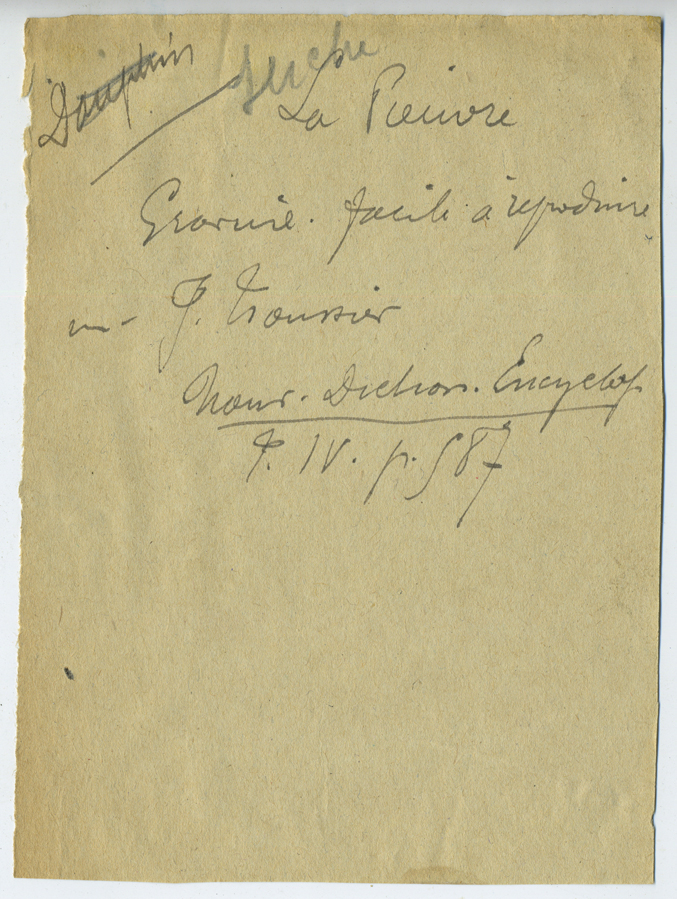 Dauphin
Seiche
La Pieuvre
Gravure. facile à reproduire
in - J. Trousset
Nouv. Diction. Encyclop
T. IV. p. 587